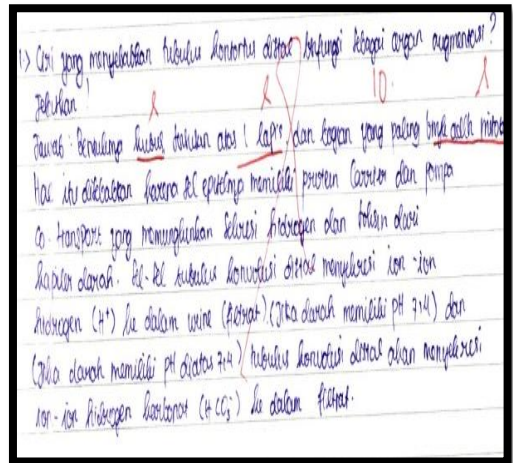 1.> Ciri yang menyebabkan tubulus kontortus distal berfungsi sebagai organ augmentasi?
Jelaskan!
Jawab: Bentuknya kubus tersusun atas 1 lapis dan bagian yang paling bnyk adlh mitok
Hal itu disebabkan karena sel epitelnya memiliki protein Carrier dan pompa
Co-transport yang memungkinkan sekresi hidrogen dan kalium dari
kapiler darah. Sel-sel tubulus konvolusi distal menyekresi ion-ion
hidrogen (H⁺) ke dalam urine (filtrat) (Jika darah memiliki pH 7,4) dan
(Jika darah memiliki pH diatas 7,4) tubulus konvolusi distal akan menyekresi
ion-ion hidrogen karbonat (HCO₃⁻) ke dalam filtrat.
10